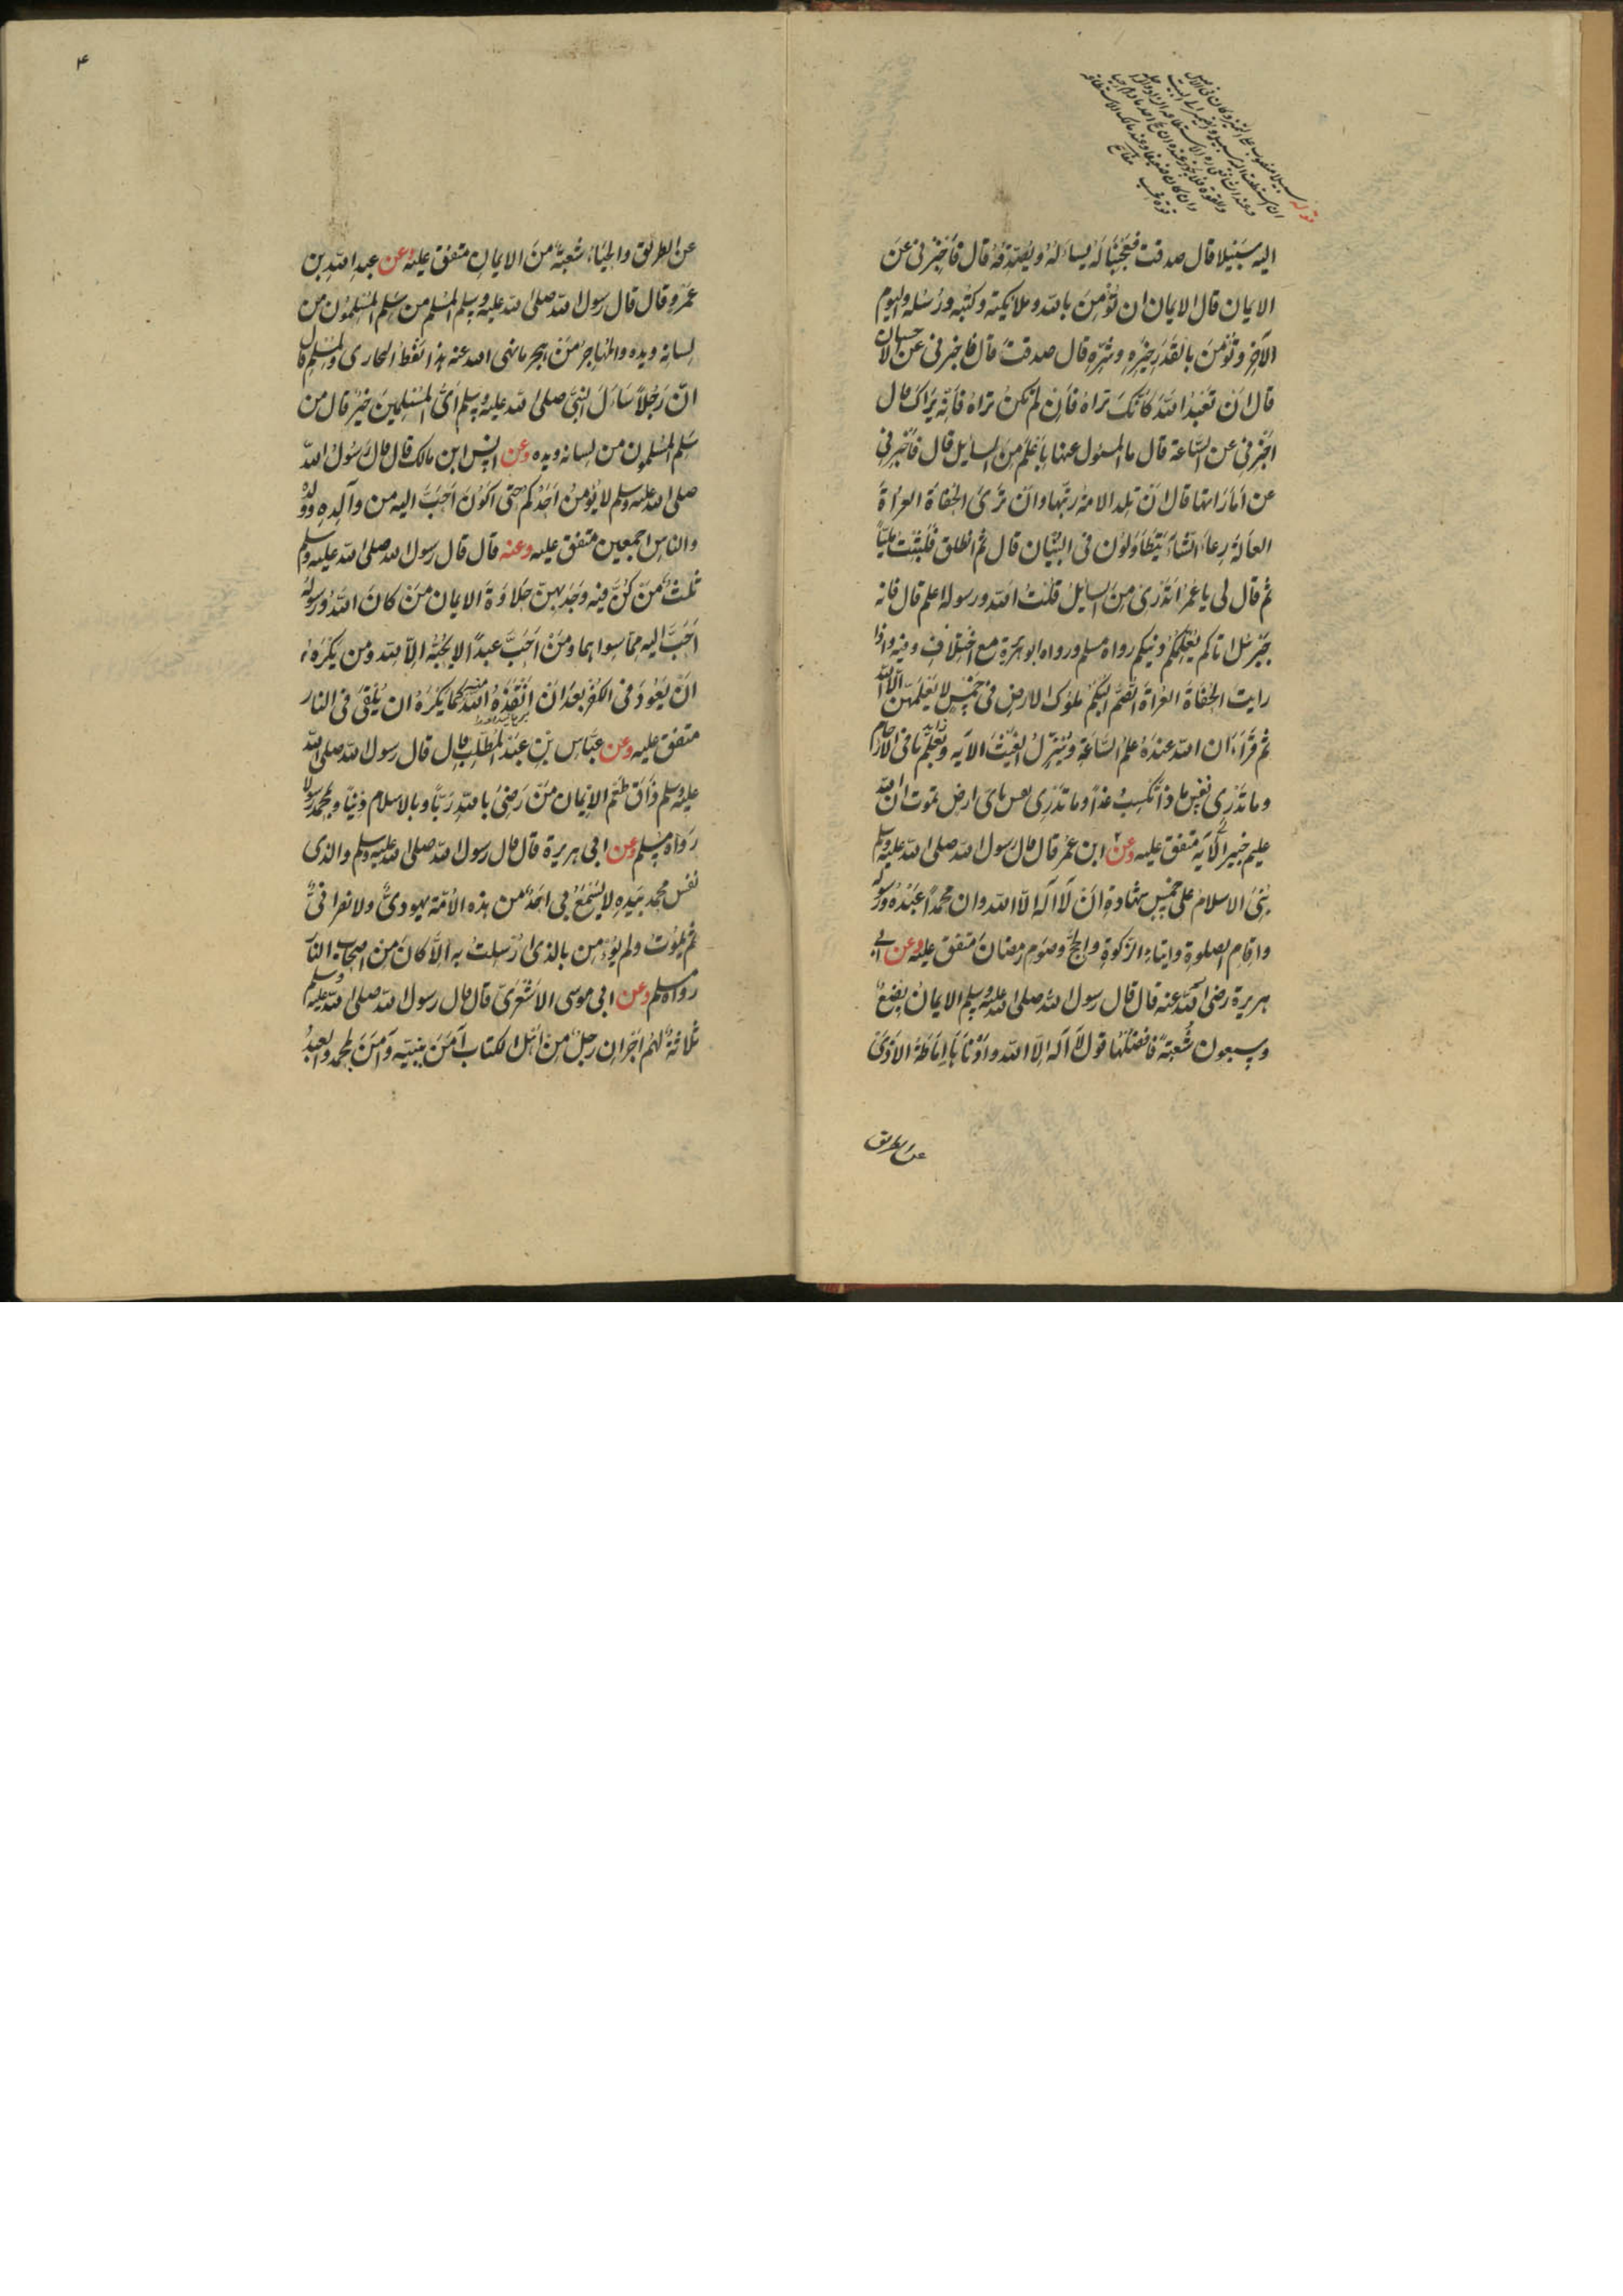 اليه سبيلا قال صدقت فعجبنا له يسأله ويصدقه قال فأخبرنى عن
الايمان قال الايمان ان تؤمن بالله وملايكته وكتبه ورسله واليوم
الآخر وتؤمن بالقدر خيره وشره قال صدقت قال فاخبرنى عن الاحسان
قال ان تعبد الله كأنك تراه فان لم تكن تراه فانه يراك قال
اخبرنى عن الساعة قال ما المسئول عنها باعلم من السايل قال فأخبرنى
عن أماراتها قال ان تلد الامة ربتها وان ترى الحفاة العراة
العالة رعاء الشاء يتطاولون فى البنيان قال ثم انطلق فلبثت مليا
ثم قال لى يا عمر اتدرى من السايل قلت الله ورسوله اعلم قال فانه
جبرئل اتاكم يعلمكم دينكم رواه مسلم ورواه ابو هريرة مع اختلاف وفيه واذا
رايت الحفاة العراة الصم البكم ملوك الارض فى خمس لا يعلمهن الا الله
ثم قرأ ان الله عنده علم الساعة وينزل الغيث الآيه ويعلم ما فى الارحام
وما تدرى نفس ماذا تكسب غدا وما تدرى نفس باى ارض تموت ان الله
عليم خبير الآية متفق عليه وعن ابن عمر قال قال رسول الله صلى الله عليه وسلم
بنى الاسلام على خمس شهادة ان لا اله الا الله وان محمدا عبده ورسوله
واقام الصلوة وايتاء الزكوة والحج وصوم رمضان متفق عليه وعن ابى
هريرة رضى الله عنه قال قال رسول الله صلى الله عليه وسلم الايمان بضع
وسبعون شعبة فافضلها قول لا اله الا الله وادناها اماطة الاذى
عن الطريق
۴
عن الطريق والحياء شعبة من الايمان متفق عليه وعن عبد الله بن
عمرو قال قال رسول الله صلى الله عليه وسلم المسلم من سلم المسلمون من
لسانه ويده والمهاجر من هجر ما نهى الله عنه هذا لفظ البخارى ولمسلم قال
ان رجلا سأل النبى صلى الله عليه وسلم اى المسلمين خير قال من
سلم المسلمون من لسانه ويده وعن انس ابن مالك قال قال رسول الله
صلى الله عليه وسلم لا يؤمن احدكم حتى اكون احب اليه من والده وولده
والناس اجمعين متفق عليه وعنه قال قال رسول الله صلى الله عليه وسلم
ثلث من كن فيه وجد بهن حلاوة الايمان من كان الله ورسوله
احب اليه مما سواهما ومن احب عبدا لا يحبه الا لله ومن يكره
ان يعود فى الكفر بعد ان انقذه الله منه كما يكره ان يلقى فى النار
متفق عليه وعن عباس بن عبد المطلب قال قال رسول الله صلى الله
عليه وسلم ذاق طعم الايمان من رضى بالله ربا وبالاسلام دينا وبمحمد رسولا
رواه مسلم وعن ابى هريرة قال قال رسول الله صلى الله عليه وسلم والذى
نفس محمد بيده لا يسمع بى احد من هذه الامة يهودى ولا نصرانى
ثم يموت ولم يؤمن بالذى ارسلت به الا كان من اصحاب النار
رواه مسلم وعن ابى موسى الاشعرى قال قال رسول الله صلى الله عليه وسلم
ثلاثة لهم اجران رجل من اهل الكتاب آمن بنبيه وآمن بمحمد والعبد